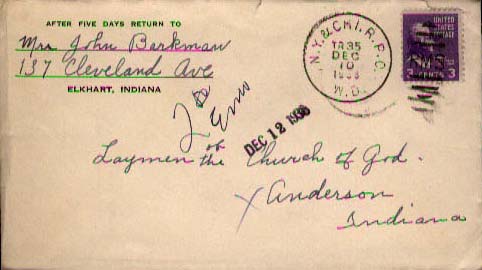 AFTER FIVE DAYS RETURN TO
Mrs John Barkman
137 Cleveland Ave
ELKHART, INDIANA
N.Y. & CHI. R.P.O.
TR35
DEC
10
1938
W.D.
UNITED STATES POSTAGE
3 CENTS 3
DEC 12 1938
Laymen of the Church of God.
Anderson
Indiana